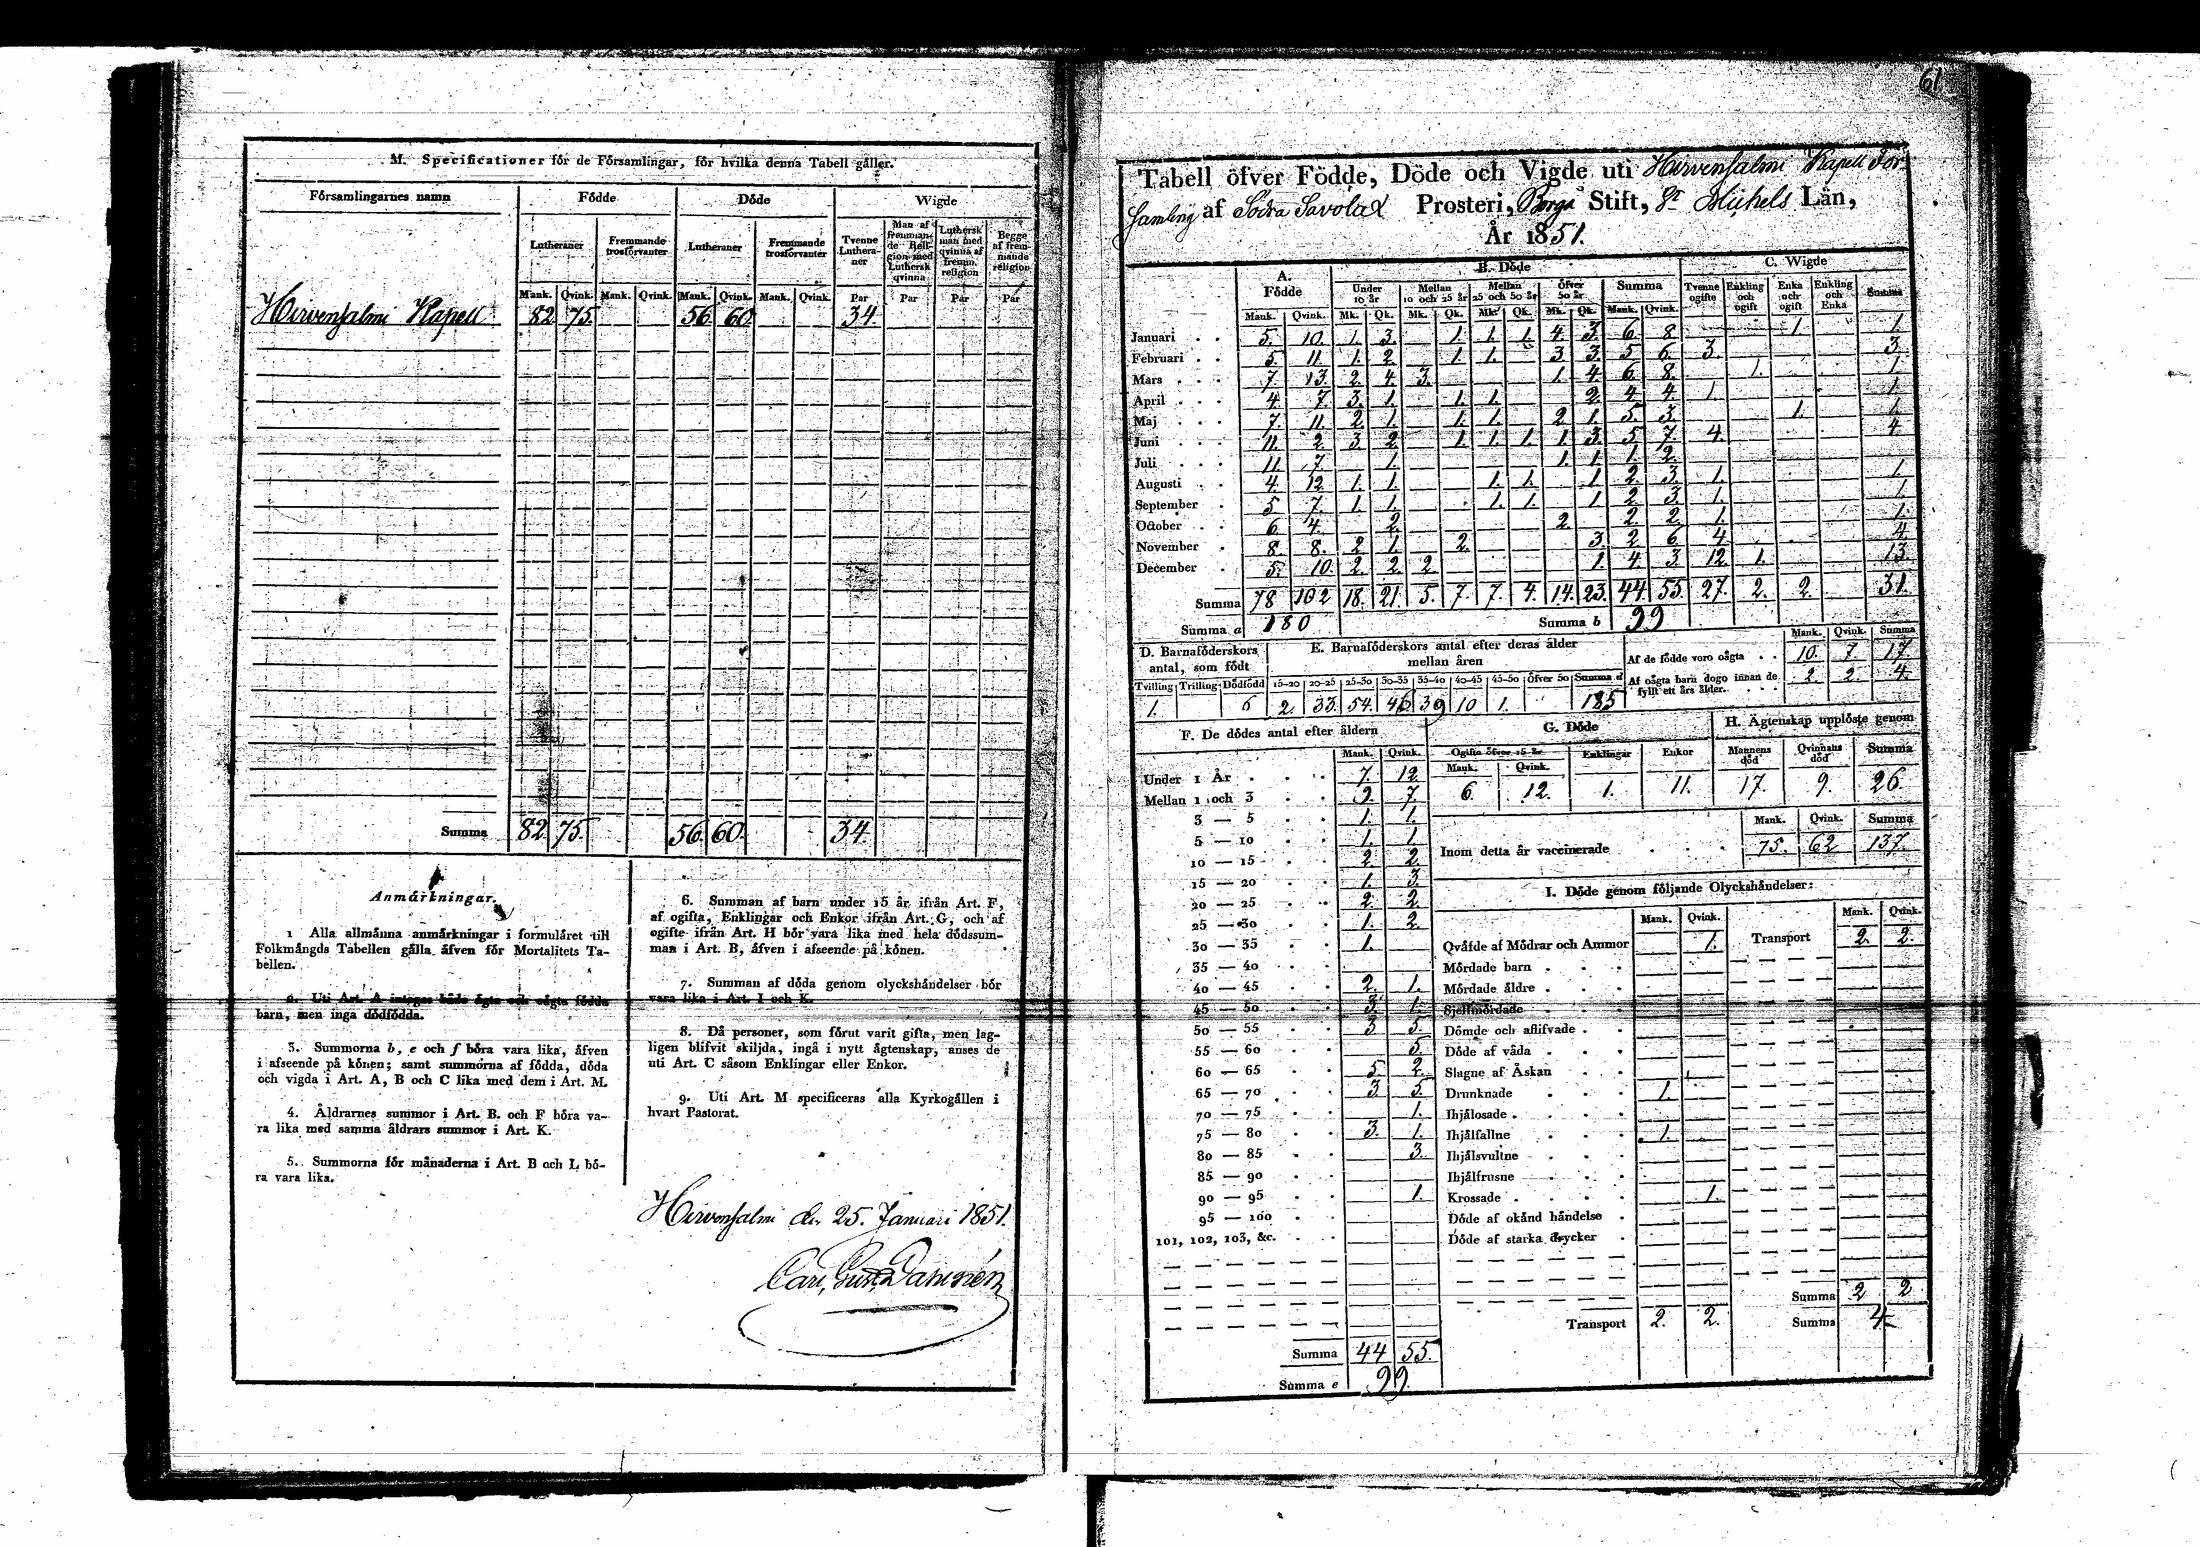 M. Specificationer för de Församlingar, för hvilka denna Tabell gäller.
Församlingarnes namn Födde Döde Wigde
Lutheraner Fremmande trosförvanter Lutheraner Fremmande trosförvanter Tvenne Lutheraner Man af fremmande Religion med Luthersk qvinna Luthersk man med qvinna af fremm. religion Begge af fremmande religion
Mank. Qvink. Mank. Qvink. Mank. Qvink. Mank. Qvink. Par Par Par Par
Hirvensalmi Kapell 82 75. 56. 60. 34.
Summa 82 75. 56. 60. 34.
Anmärkningar.
1 Alla allmänna anmärkningar i formuläret till
Folkmängds Tabellen gälla äfven för Mortalitets Ta-
bellen.
2. Uti Art. A intages både ägta och oägta födda
barn, men inga dödfödda.
3. Summorna b, e och f böra vara lika, äfven
i afseende på könen; samt summorna af födda, döda
och vigda i Art. A, B och C lika med dem i Art. M.
4. Åldrarnes summor i Art. B. och F böra va-
ra lika med samma åldrars summor i Art. K.
5. Summorna för månaderna i Art. B och L bö-
ra vara lika.
6. Summan af barn under 15 år ifrån Art. F,
af ogifta, Enklingar och Enkor ifrån Art. G, och af
ogifte ifrån Art. H bör vara lika med hela dödssum-
man i Art. B, äfven i afseende på könen.
7. Summan af döda genom olyckshändelser bör
vara lika i Art. I och K.
8. Då personer, som förut varit gifta, men lag-
ligen blifvit skiljda, ingå i nytt ägtenskap, anses de
uti Art. C såsom Enklingar eller Enkor.
9. Uti Art. M specificeras alla Kyrkogällen i
hvart Pastorat.
Hirvensalmi den 25. Januari 1851.
Carl Gust. Dannén
61
Tabell öfver Födde, Döde och Vigde uti Hirvensalmi Kapell För
samling af Södra Savolax Prosteri, Borgå Stift, St Michels Län,
År 1851.
A. Födde B. Döde C. Wigde
Under 10 år Mellan 10 och 25 år Mellan 25 och 50 år Öfver 50 år Summa Tvenne ogifte Enkling och ogift Enka och ogift Enkling och Enka Summa
Mank. Qvink. Mk. Qk. Mk. Qk. Mk. Qk. Mk. Qk. Mank. Qvink.
Januari 5. 10. 1. 3. 1. 1. 1. 4. 3. 6. 8. 1. 1.
Februari 5. 11. 1. 2. 1. 1. 3 3. 5 6. 3. 3.
Mars 7. 13. 2. 4. 3. 1. 4. 6. 8. 1. 1.
April 4. 7. 3. 1. 1. 1. 2. 4. 4. 1. 1.
Maj 7. 11. 2. 1. 1. 1. 2 1. 5. 3. 1. 1.
Juni 11. 2. 3 2. 1. 1. 1. 1 3. 5 7. 4. 4.
Juli 11. 7. 1. 1. 1. 1. 2.
Augusti 4. 12. 1. 1. 1. 1. 1 2. 3. 1. 1.
September 5. 7. 1. 1. 1. 1. 1 2. 3. 1. 1.
October 6. 4. 2. 2. 2. 2. 1. 1.
November 8. 8. 2 1. 2. 3. 2 6. 4 4.
December 5. 10. 2. 2. 2. 1. 4. 3. 12. 1. 13.
Summa 78 102 18. 21. 5. 7. 7. 4. 14. 23. 44. 55. 27. 2. 2. 31.
Summa a 180 Summa b 99
D. Barnaföderskors antal, som födt
Tvilling Trilling Dödfödd
1. 6
E. Barnaföderskors antal efter deras ålder
mellan åren
15-20 20-25 25-30 30-35 35-40 40-45 45-50 Öfver 50 Summa d
2. 33. 54. 46 39 10 1. 185
Mank. Qvink. Summa
Af de födde voro oägta 10. 7. 17.
Af oägta barn dogo innan de fyllt ett års ålder. 2. 2. 4.
F. De dödes antal efter åldern
Mank. Qvink.
Under 1 År 7. 12
Mellan 1 och 3 9. 7.
3 — 5 1. 1.
5 — 10 1. 1.
10 — 15 2. 2.
15 — 20 1. 3.
20 — 25 2. 2.
25 — 30 1. 2.
30 — 35 1.
35 — 40
40 — 45 2. 1.
45 — 50 3. 1.
50 — 55 3 5.
55 — 60 5.
60 — 65 5. 2.
65 — 70 3 5.
70 — 75 1.
75 — 80 3. 1.
80 — 85 3.
85 — 90
90 — 95 1.
95 — 100
101, 102, 103, &c.
Summa 44 55.
Summa e 99.
G. Döde
Ogifta öfver 15 år Enklingar Enkor
Mank. Qvink.
6. 12. 1. 11.
H. Ägtenskap upplöste genom
Mannens död Qvinnans död Summa
17. 9. 26.
Mank. Qvink. Summa
Inom detta år vaccinerade 75. 62 137.
I. Döde genom följande Olyckshändelser:
Mank. Qvink. Mank. Qvink.
Qväfde af Mödrar och Ammor 1. Transport 2. 2.
Mördade barn
Mördade äldre
Sjelfmördade
Dömde och aflifvade
Döde af våda
Slagne af Åskan
Drunknade 1.
Ihjälosade
Ihjälfallne 1.
Ihjälsvultne
Ihjälfrusne
Krossade 1.
Döde af okänd händelse
Döde af starka drycker
Summa 2 2
Transport 2. 2. Summa 4